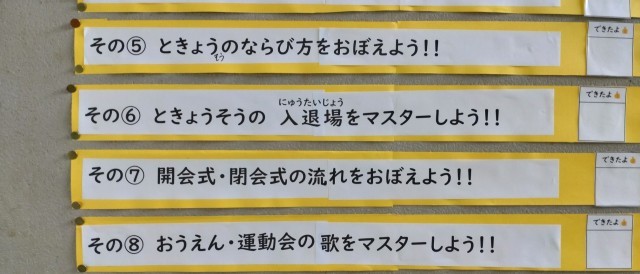 できたよ👍
その⑤ ときょうのならび方をおぼえよう!!
そう
できたよ👍
にゅうたいじょう
その⑥ ときょうそうの 入退場をマスターしよう!!
できたよ👍
その⑦ 開会式・閉会式の流れをおぼえよう!!
できたよ👍
その⑧ おうえん・運動会の歌をマスターしよう!!